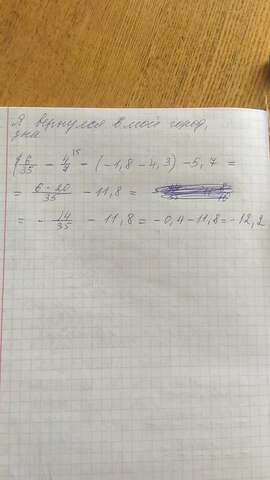 Я вернулся в мой город,
зна
6/35 - 4/7 ¹⁵ - (-1,8 - 4,3) - 5,7 =
= (6 - 20)/35 - 11,8 =
= - 14/35 - 11,8 = -0,4 - 11,8 = -12,2